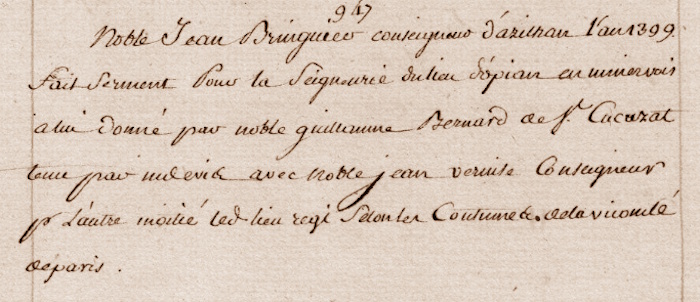 947
Noble Jean Bringuier conseigneur d'azilhan l'an 1399.
Fait serment Pour la Seigneurie du lieu d'opian en minervois
a lui donné par noble guilhaume Bernard de St. Cucuzat
tenu par indevis avec noble jean Conseigneur
pr L'autre moitié led. lieu regi Selon les Coutumes de la vicomté
de paris.